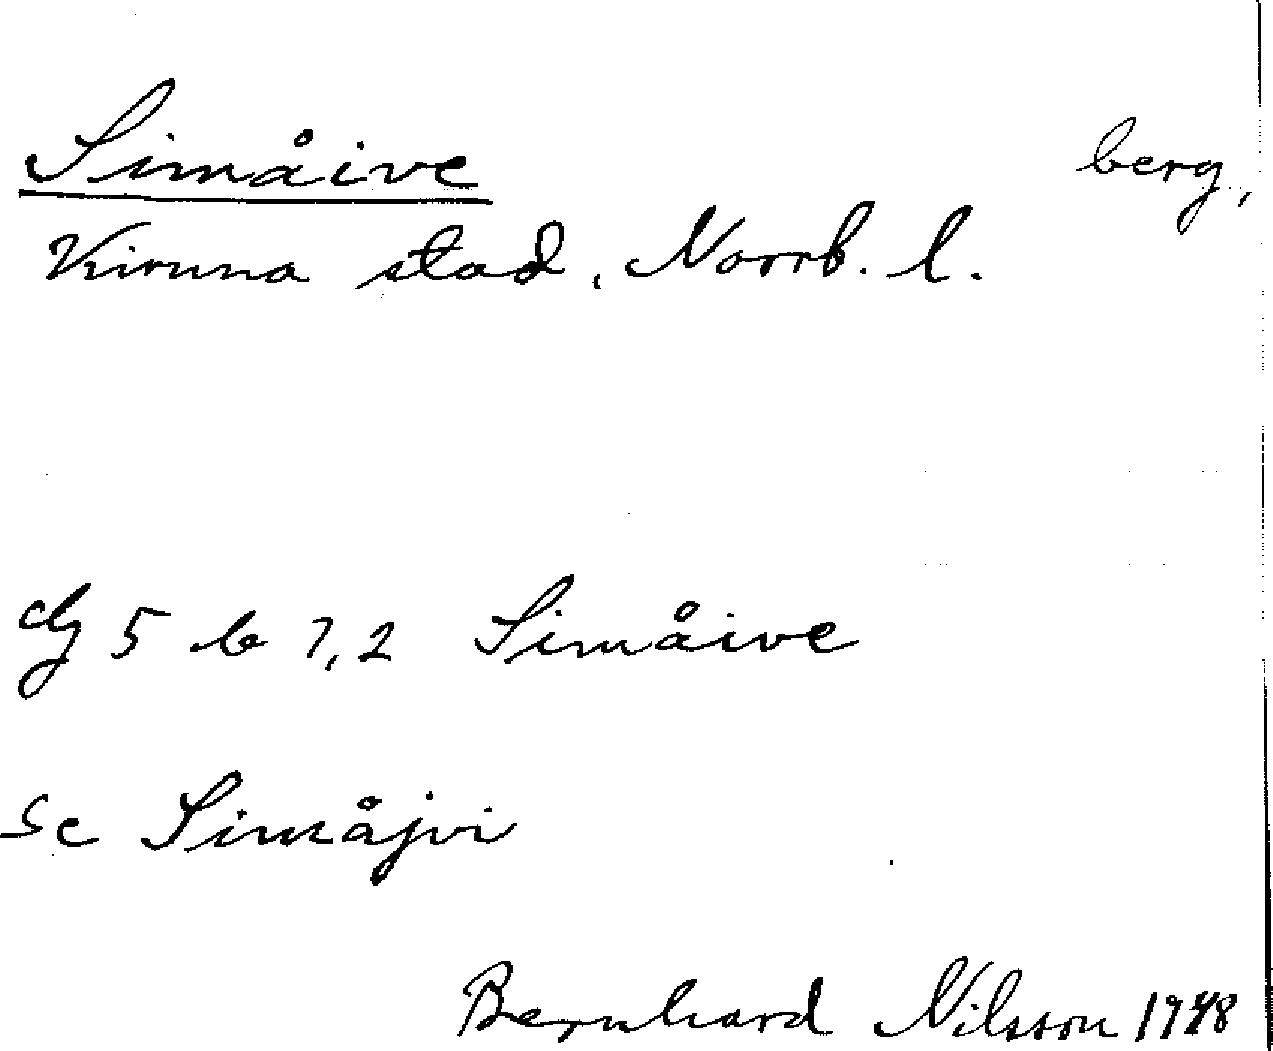 Simåive berg,
Kiruna stad, Norrb. l.
dg 5 b 7,2 Simåive
Se Simåjvi
Bernhard Nilsson 1948